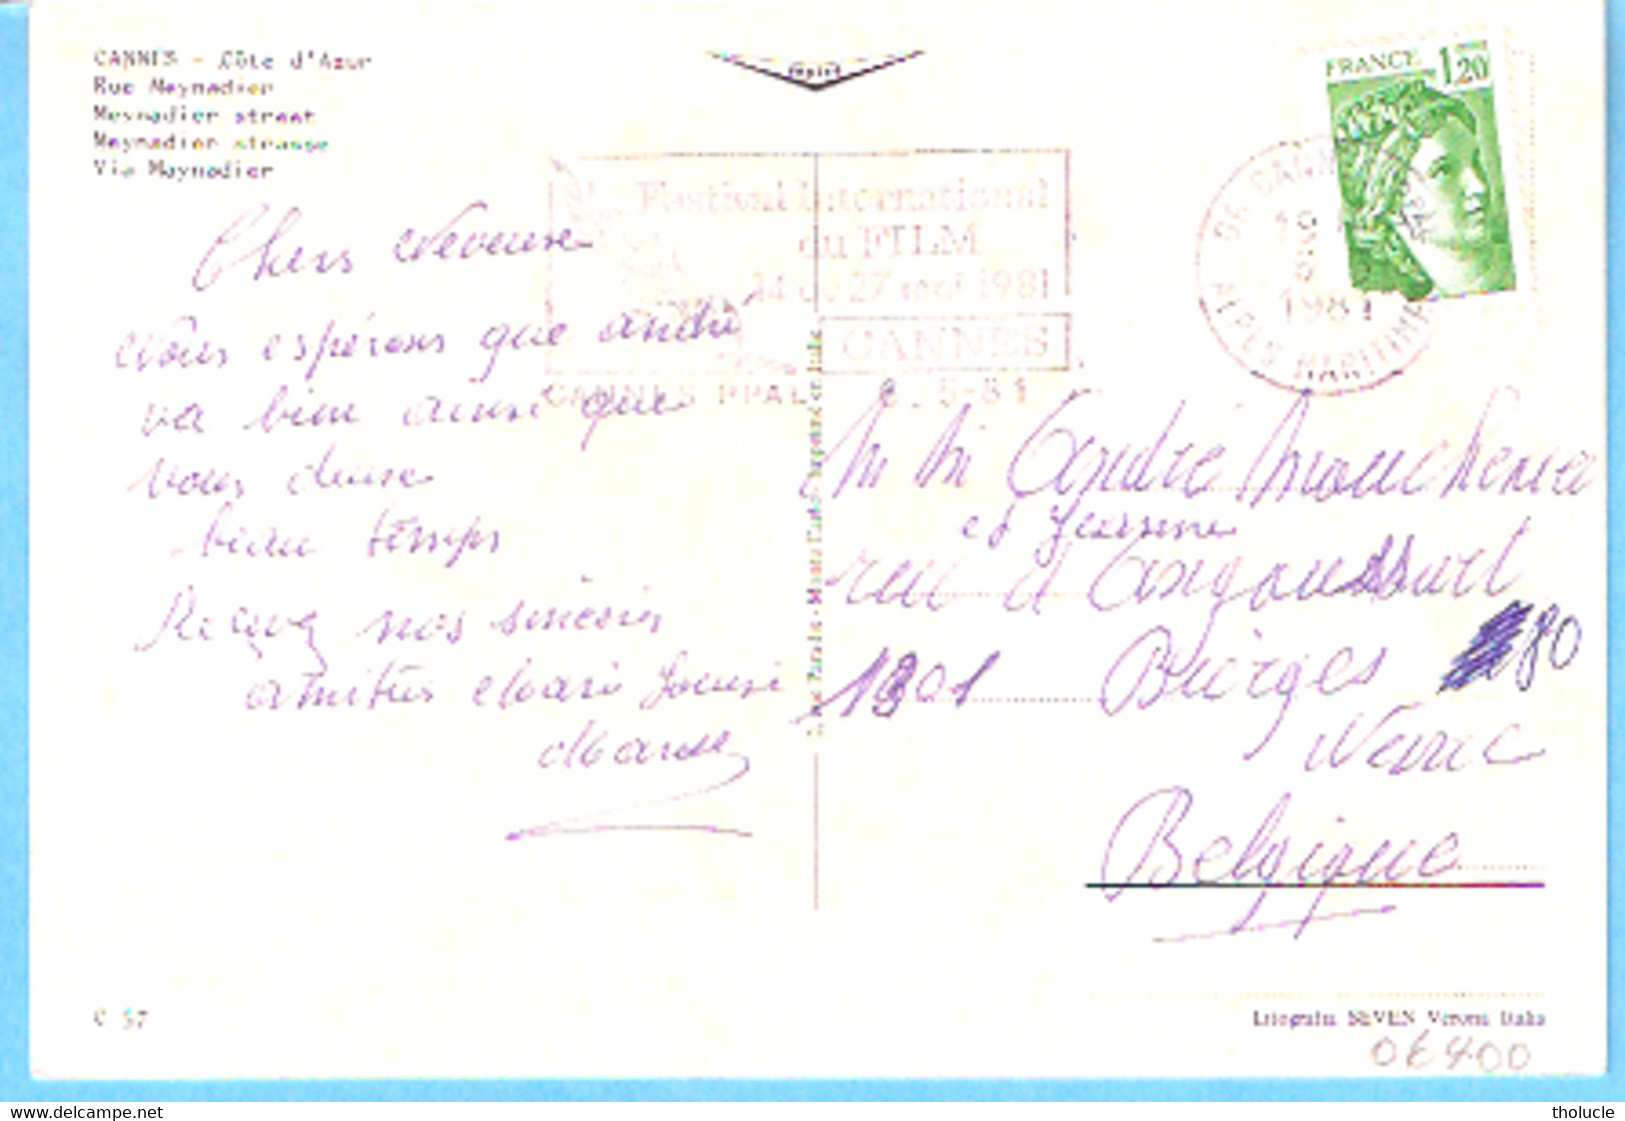 CANNES - Côte d'Azur
Rue Meynadier
Meynadier street
Meynadier strasse
Via Meynadier
FRANCE 1,20
Festival International
du FILM
14 au 27 mai 1981
CANNES
CANNES PPAL 8-5-81
DE CANNES
19 H
8-5
1981
ALPES MARITIMES
Chers
Nous espérons que André
va bien ainsi que
vous deux
beau temps
Recevez nos sincères
amitiés Marie Louise
Marcel
M M André
et Jeanine
rue d' 80
1301 Bierges
Wavre
Belgique
C 57
Litografia SEVEN Verona Italia
06400
www.delcampe.net
tholucle